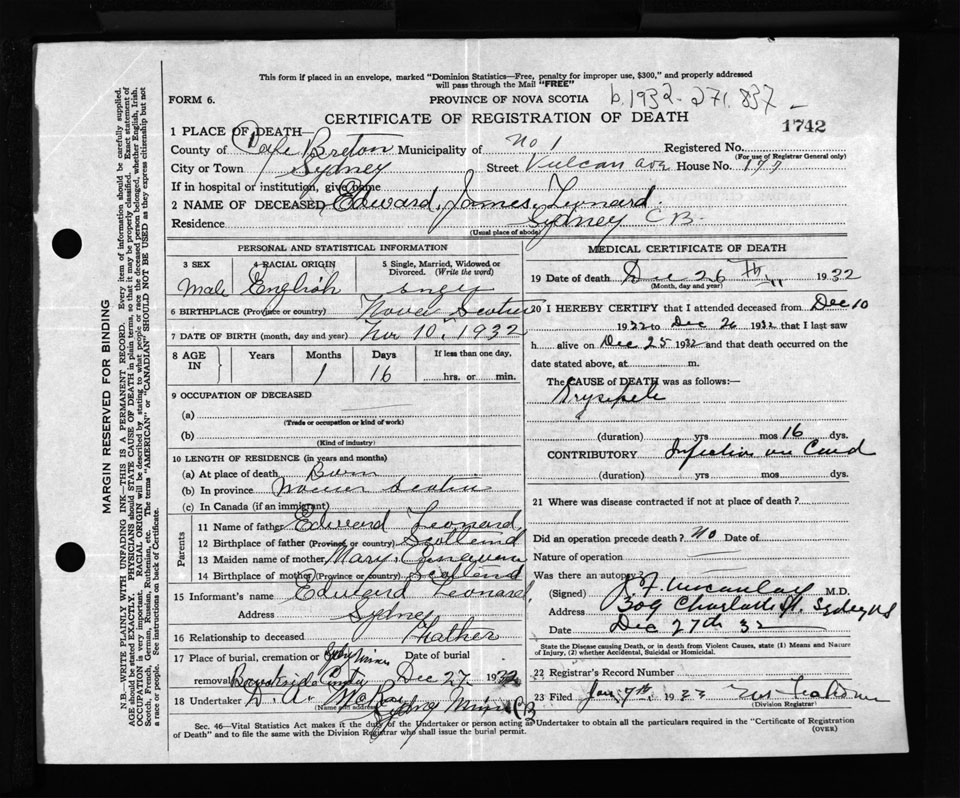 This form if placed in an envelope, marked "Dominion Statistics—Free, penalty for improper use, $300," and properly addressed
will pass through the Mail "FREE"
FORM 6.
PROVINCE OF NOVA SCOTIA
b.1932-271.837
CERTIFICATE OF REGISTRATION OF DEATH
1742
1 PLACE OF DEATH—
County of Cape Breton Municipality of No 1 Registered No.
(For use of Registrar General only)
City or Town Sydney Street Vulcan Ave House No. 177
If in hospital or institution, give name
2 NAME OF DECEASED Edward James Leonard
Residence Sydney C B
(Usual place of abode)
PERSONAL AND STATISTICAL INFORMATION
3 SEX 4 RACIAL ORIGIN 5 Single, Married, Widowed or
Divorced. (Write the word)
Male English
6 BIRTHPLACE (Province or country) Nova Scotia
7 DATE OF BIRTH (month, day and year) Nov 10, 1932
8 AGE IN Years Months Days If less than one day,
1 16 hrs. or min.
9 OCCUPATION OF DECEASED
(a)
(Trade or occupation or kind of work)
(b)
(Kind of industry)
10 LENGTH OF RESIDENCE (in years and months)
(a) At place of death Born
(b) In province Scotia
(c) In Canada (if an immigrant)
Parents
11 Name of father Edward Leonard
12 Birthplace of father (Province or country) Scotland
13 Maiden name of mother Mary
14 Birthplace of mother (Province or country) Scotland
15 Informant's name Edward Leonard
Address Sydney
16 Relationship to deceased Father
17 Place of burial, cremation or Date of burial
removal Dec 27 1932
18 Undertaker D. A. McRae
(Name and address)
Sydney Mines CB
MEDICAL CERTIFICATE OF DEATH
19 Date of death Dec 26 Th 1932
(Month, day and year)
20 I HEREBY CERTIFY that I attended deceased from Dec 10
1932 to Dec 26 1932 that I last saw
h alive on Dec 25 1932 and that death occurred on the
date stated above, at m.
The CAUSE OF DEATH was as follows:—
(duration) yrs mos 16 dys.
CONTRIBUTORY Infection Cord
(duration) yrs mos dys.
21 Where was disease contracted if not at place of death?
Did an operation precede death? No Date of
Nature of operation
Was there an autopsy?
(Signed) M.D.
Address 309 Charlotte St. Sydney NS
Date Dec 27th 32
State the Disease causing Death, or in death from Violent Causes, state (1) Means and Nature
of Injury, (2) whether Accidental, Suicidal or Homicidal.
22 Registrar's Record Number
23 Filed Jan 7th 1933
(Division Registrar)
Sec. 46—Vital Statistics Act makes it the duty of the Undertaker or person acting as Undertaker to obtain all the particulars required in the "Certificate of Registration
of Death" and to file the same with the Division Registrar who shall issue the burial permit.
(OVER)
MARGIN RESERVED FOR BINDING
N.B.—WRITE PLAINLY WITH UNFADING INK—THIS IS A PERMANENT RECORD. Every item of information should be carefully supplied.
AGE should be stated EXACTLY. PHYSICIANS should STATE CAUSE OF DEATH in plain terms, so that it may be properly classified. Exact statement of
OCCUPATION is very important. RACIAL ORIGIN will be described by stating to what people or race the deceased person belonged, whether English, Irish,
Scotch, French, German, Russian, Ruthenian, etc. The terms "AMERICAN" or "CANADIAN" SHOULD NOT BE USED as they express citizenship but not
a race or people. See instructions on back of Certificate.